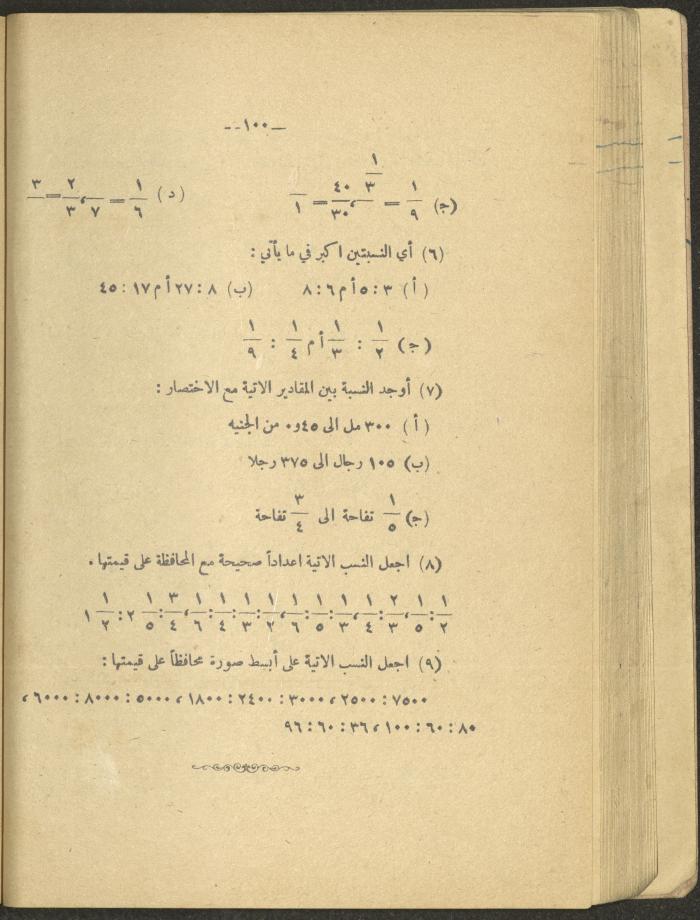 —١٠٠--
(ج) ١/٩ = ٤٠/٣٠ ، (١/٣)/ = /١ (د) ١/٦ = /٧ ، ٢/٣ = ٣/
(٦) أي النسبتين اكبر في ما يأتي :
(أ) ٣ : ٥ أم ٦ : ٨ (ب) ٨ : ٢٧ أم ١٧ : ٤٥
(ج) ١/٢ : ١/٣ أم ١/٤ : ١/٩
(٧) أوجد النسبة بين المقادير الاتية مع الاختصار :
(أ) ٣٠٠ مل الى ٤٥و٠ من الجنيه
(ب) ١٠٥ رجال الى ٣٧٥ رجلا
(ج) ١/٥ تفاحة الى ٣/٤ تفاحة
(٨) اجعل النسب الاتية اعداداً صحيحة مع المحافظة على قيمتها .
١/٢ : ١/٥ ، ٢/٣ : ١/٤ ، ١/٣ : ١/٥ : ١/٦ ، ١/٢ : ١/٣ : ١/٤ : ١/٦ ، ٣/٤ : ١/٥ ٢ : ١/٢ ١
(٩) اجعل النسب الاتية على أبسط صورة محافظاً على قيمتها :
٧٥٠٠ : ٢٥٠٠ ، ٣٠٠٠ : ٢٤٠٠ : ١٨٠٠ ، ٥٠٠٠ : ٨٠٠٠ : ٦٠٠٠ ،
٨٠ : ٦٠ : ١٠٠ ، ٣٦ : ٦٠ : ٩٦